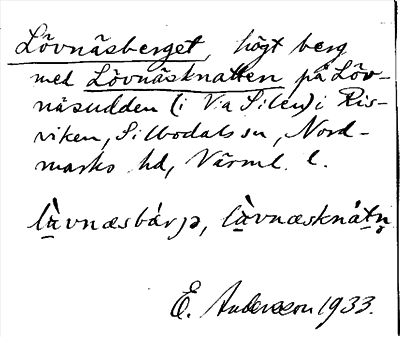 Lövnäsberget, högt berg
med Lövnäsknatten på Löv-
näsudden (i V:a Silen) i Ris-
viken, Silbodals sn, Nord-
marks hd, Värml. l.
làvnæsbárjə, làvnæsknátn̥
E. Andersson 1933.